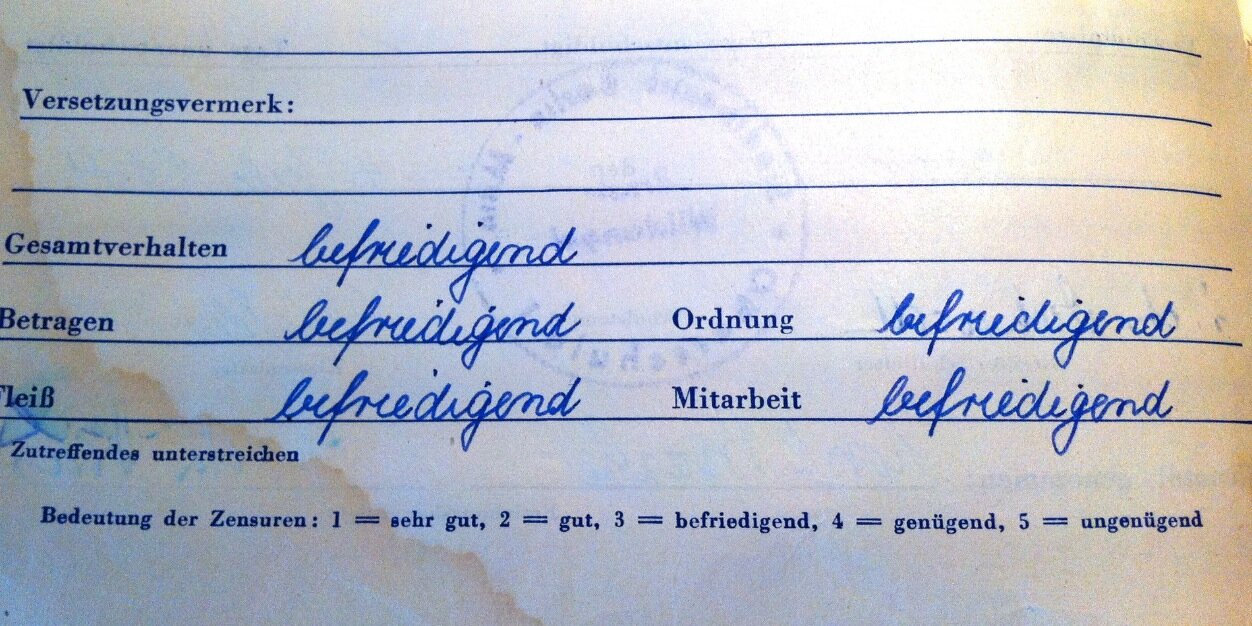 Versetzungsvermerk:
Gesamtverhalten befriedigend
Betragen befriedigend Ordnung befriedigend
Fleiß befriedigend Mitarbeit befriedigend
Zutreffendes unterstreichen
Bedeutung der Zensuren: 1 = sehr gut, 2 = gut, 3 = befriedigend, 4 = genügend, 5 = ungenügend